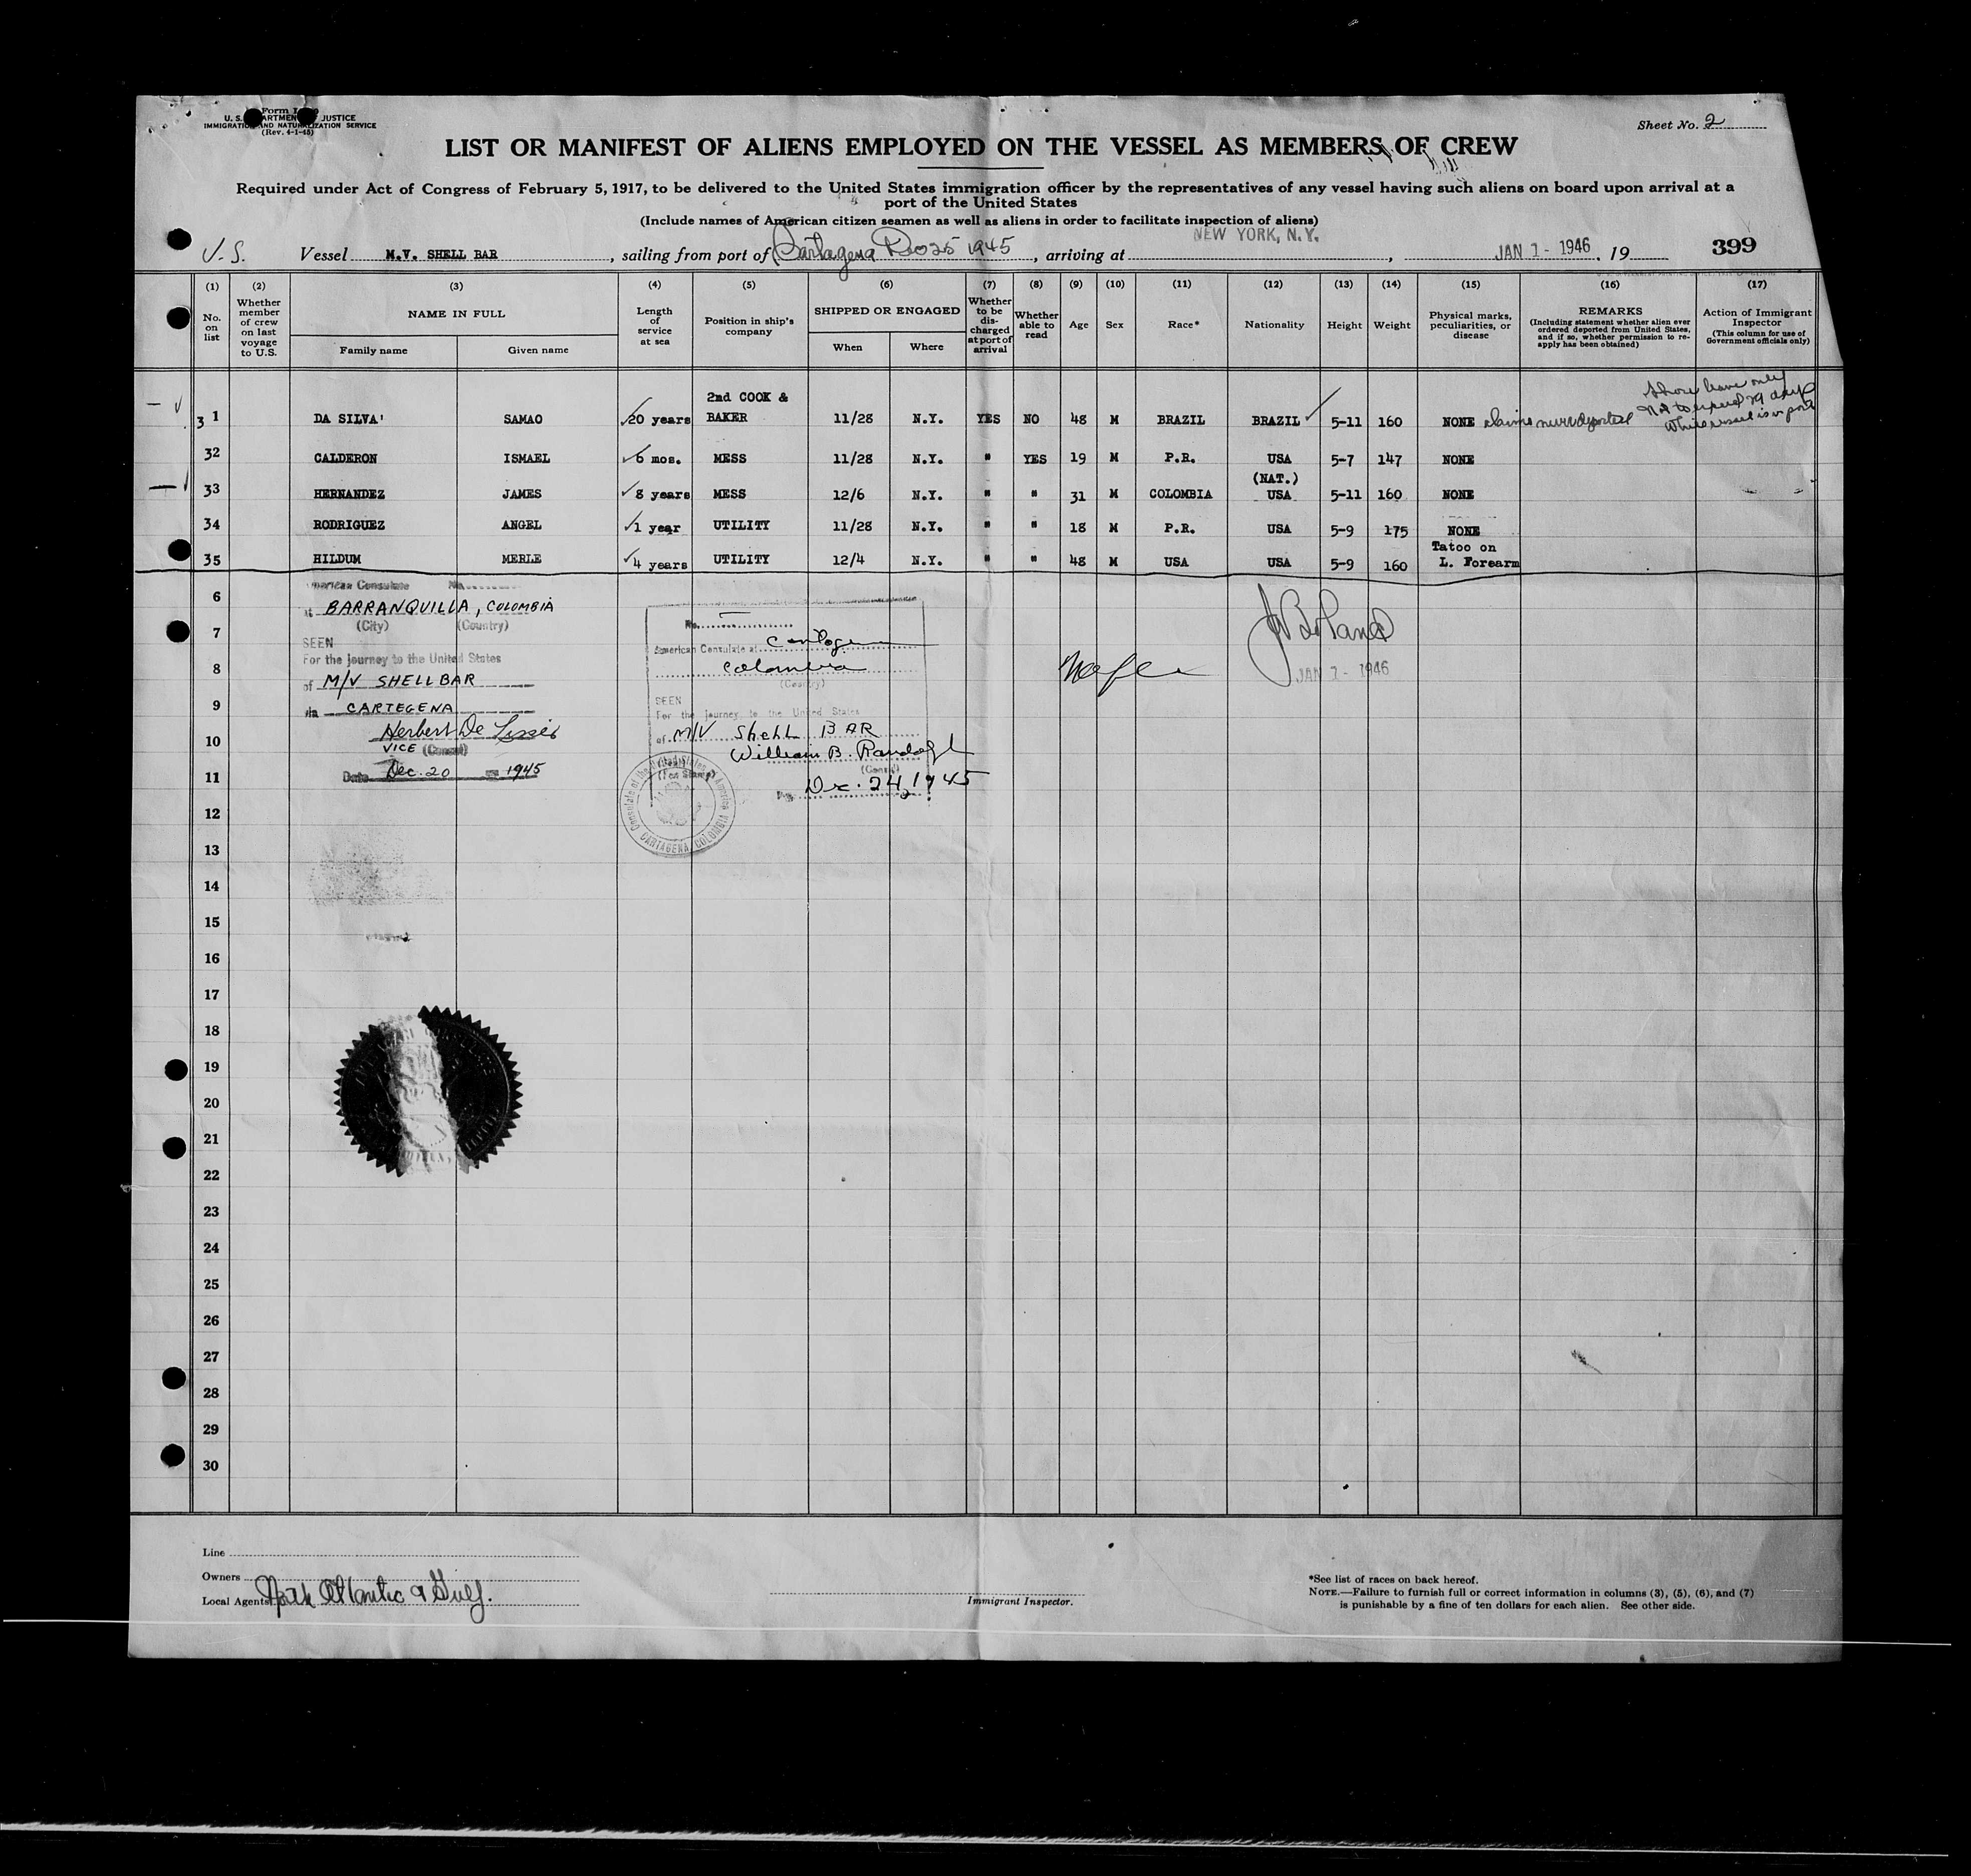 Form I-
U. S. DEPARTMENT OF JUSTICE
IMMIGRATION AND NATURALIZATION SERVICE
(Rev. 4-1-45)
Sheet No. 2
LIST OR MANIFEST OF ALIENS EMPLOYED ON THE VESSEL AS MEMBERS OF CREW
Required under Act of Congress of February 5, 1917, to be delivered to the United States immigration officer by the representatives of any vessel having such aliens on board upon arrival at a
port of the United States
(Include names of American citizen seamen as well as aliens in order to facilitate inspection of aliens)
U.S. Vessel M.V. SHELL BAR, sailing from port of Cartagena Dec 25 1945, arriving at NEW YORK, N.Y., JAN 1 - 1946, 19 399
(1) (2) (3) (4) (5) (6) (7) (8) (9) (10) (11) (12) (13) (14) (15) (16) (17)
No. on list
Whether member of crew on last voyage to U.S.
NAME IN FULL
Family name Given name
Length of service at sea
Position in ship's company
SHIPPED OR ENGAGED
When Where
Whether to be discharged at port of arrival
Whether able to read
Age Sex Race* Nationality Height Weight
Physical marks, peculiarities, or disease
REMARKS
(Including statement whether alien ever ordered deported from United States, and if so, whether permission to reapply has been obtained)
Action of Immigrant Inspector
(This column for use of Government officials only)
31 DA SILVA' SAMAO 20 years 2nd COOK & BAKER 11/28 N.Y. YES NO 48 M BRAZIL BRAZIL 5-11 160 NONE claims never deported
Shore leave only
Not to exceed 29 days
While vessel is in port
32 CALDERON ISMAEL 6 mos. MESS 11/28 N.Y. " YES 19 M P.R. USA 5-7 147 NONE
33 HERNANDEZ JAMES 8 years MESS 12/6 N.Y. " " 31 M COLOMBIA (NAT.) USA 5-11 160 NONE
34 RODRIGUEZ ANGEL 1 year UTILITY 11/28 N.Y. " " 18 M P.R. USA 5-9 175 NONE
35 HILDUM MERLE 4 years UTILITY 12/4 N.Y. " " 48 M USA USA 5-9 160 Tatoo on L. Forearm
American Consulate No.
at BARRANQUILLA, COLOMBIA
(City) (Country)
SEEN
For the journey to the United States
of M/V SHELLBAR
via CARTEGENA
Herbert De
VICE (Consul)
Date Dec. 20 1945
No.
American Consulate at Cartagena
Colombia
(Country)
SEEN
For the journey to the United States
of M/V Shell BAR
William B. Randolph
(Consul)
(Fee Stamp)
Dec. 24, 1945
Consulate of the United States of America
CARTAGENA, COLOMBIA
JAN 1 - 1946
6
7
8
9
10
11
12
13
14
15
16
17
18
19
20
21
22
23
24
25
26
27
28
29
30
Line
Owners
Local Agents North Atlantic & Gulf.
Immigrant Inspector.
*See list of races on back hereof.
NOTE.—Failure to furnish full or correct information in columns (3), (5), (6), and (7)
is punishable by a fine of ten dollars for each alien. See other side.